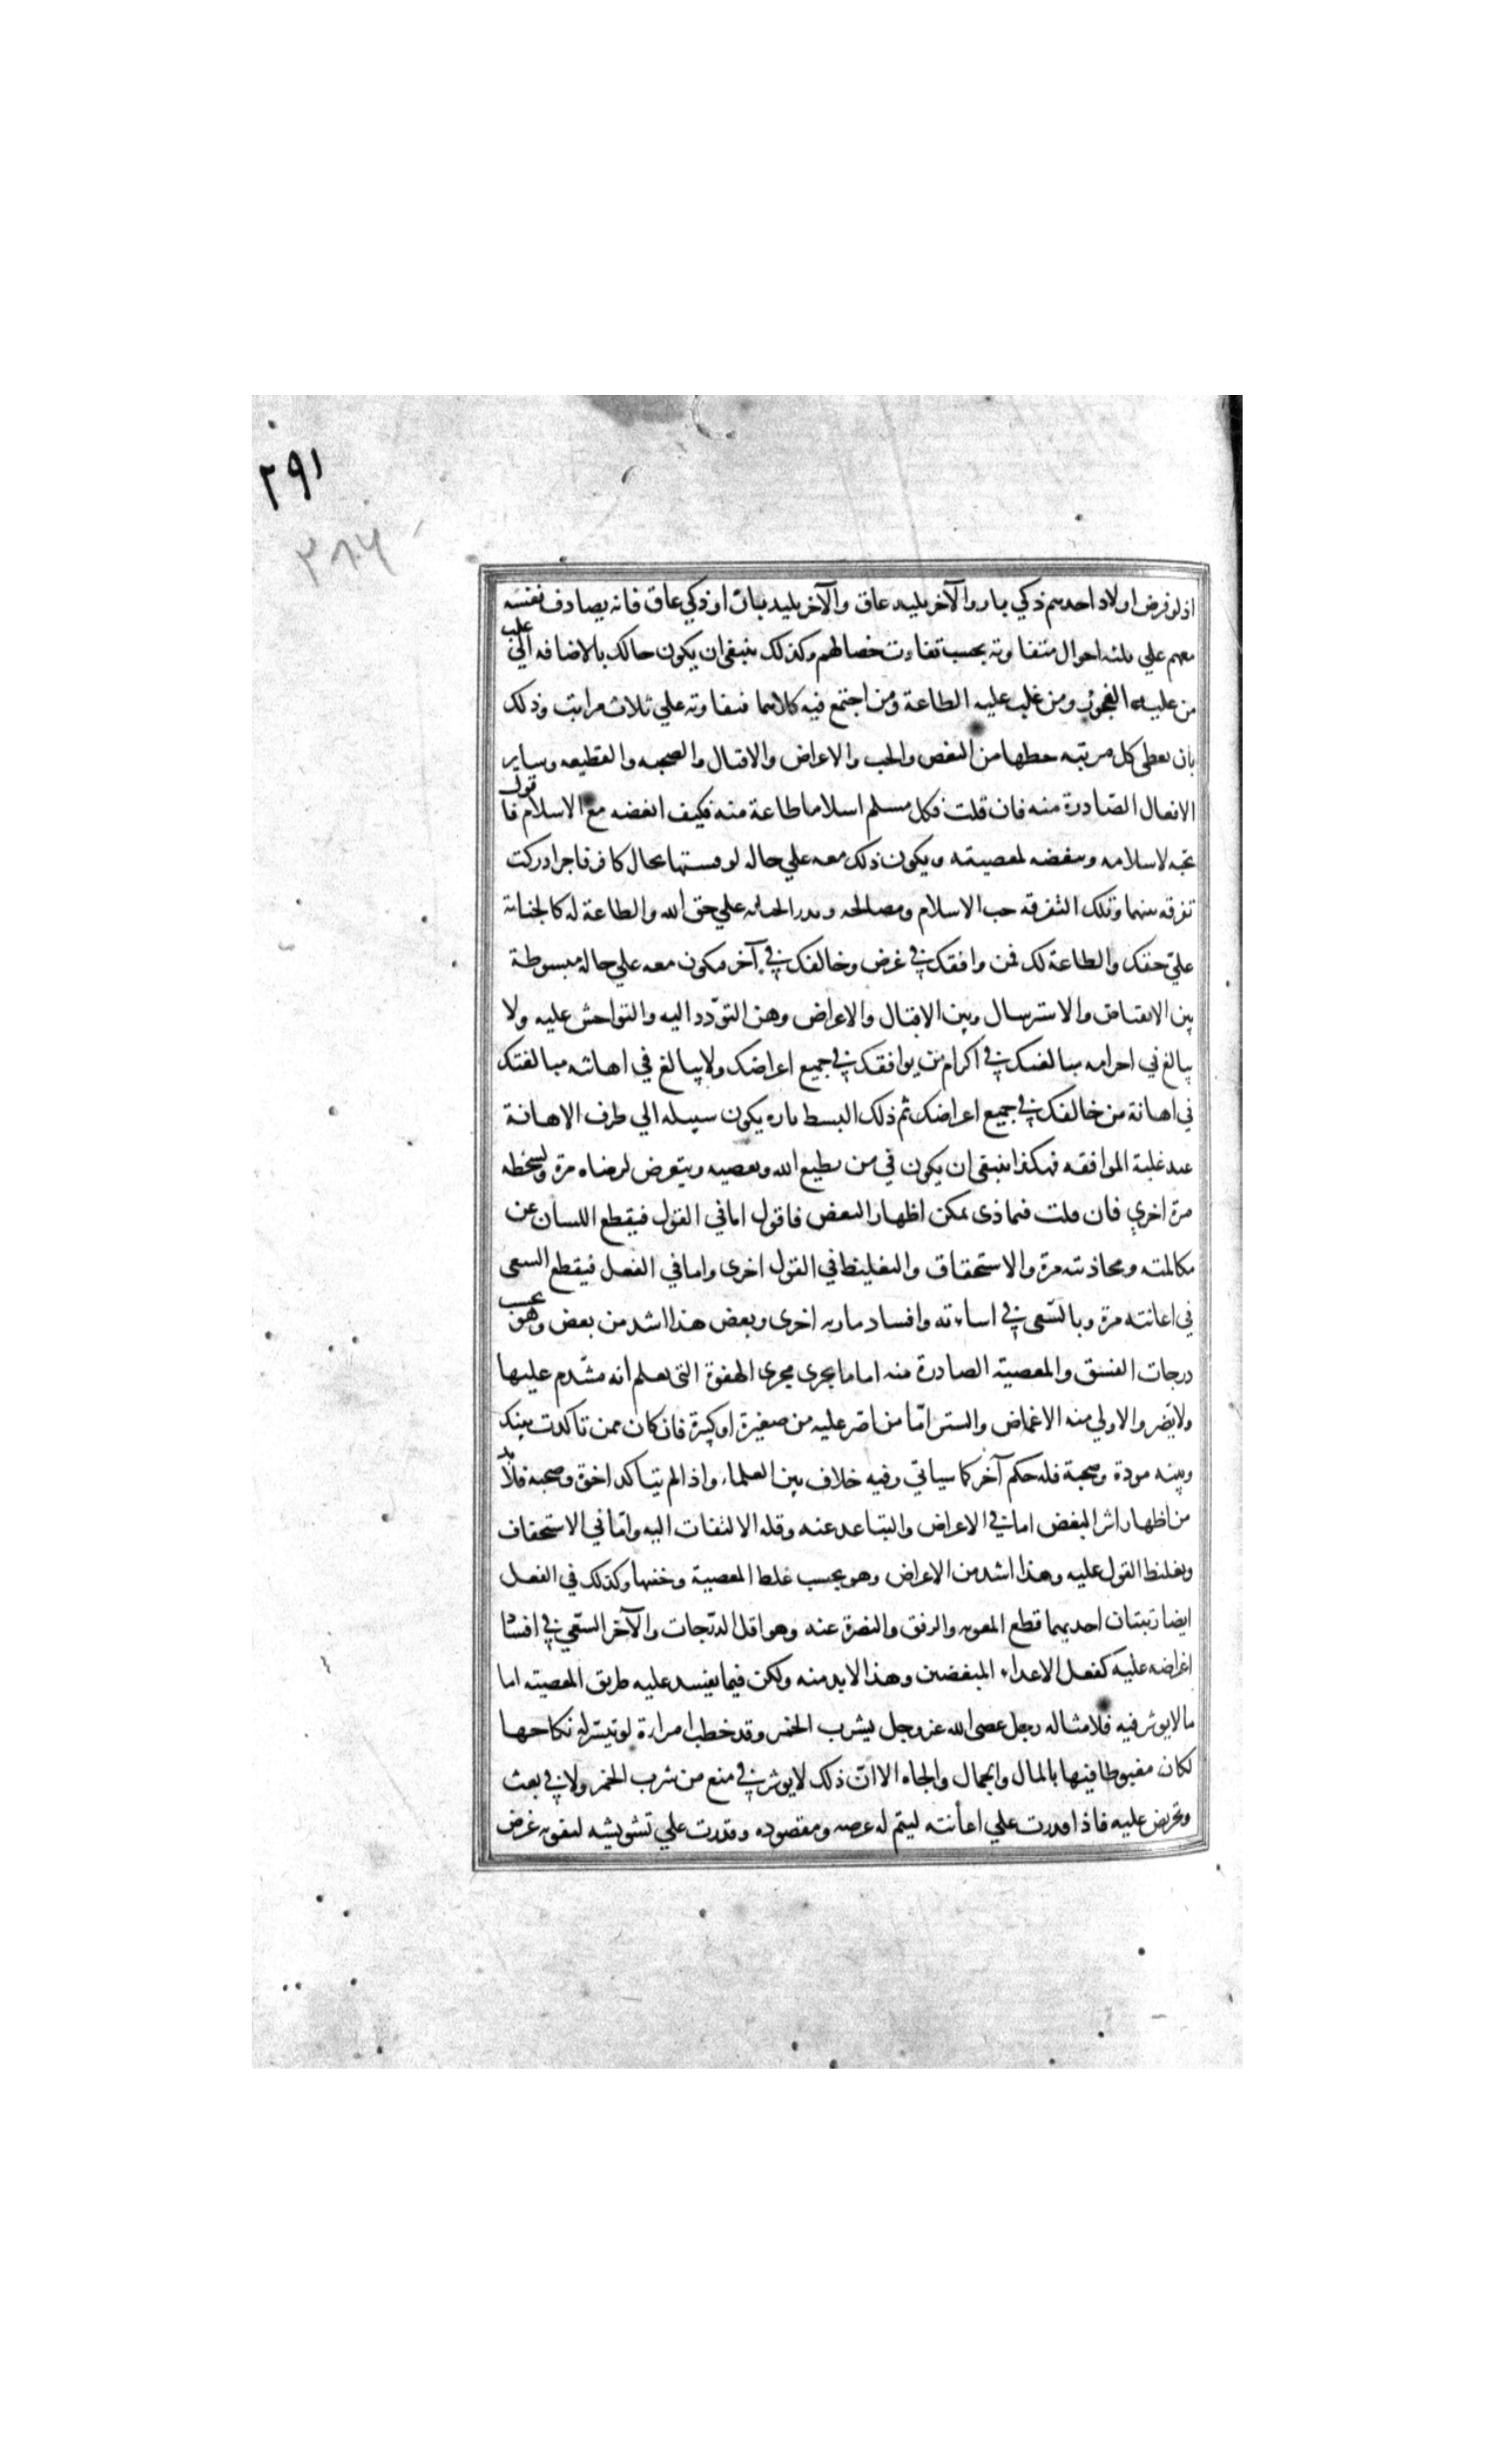 ٢٩١
٣٨٦
اذ لو فرض اولاد احدهم ذكي بار والآخر بليد عاق والآخر بليد بار او ذكي عاق فانه يصادف نفسه
معهم علي ثلثه احوال متفاوته بحسب تفاوت خصالهم وكذلك ينبغي ان يكون حالك بالاضافه الي
من غلب عليه الفجور ومن غلب عليه الطاعة ومن اجتمع فيه كلاهما متفاوته علي ثلاث مراتب وذلك
بان يعطي كل مرتبه حظها من البغض والحب والاعراض والاقبال والصحبه والقطيعه وساير
الافعال الصادرة منه فان قلت فكل مسلم اسلامه طاعة منه فكيف ابغضه مع الاسلام فاقول
تحبه لاسلامه وتبغضه لمعصيته ويكون ذلك معه علي حاله لو قستها بحال كافر فاجر ادركت
تفرقه بينهما وتلك التفرقه حب الاسلام ومصالحه وقدر الجنايه علي حق الله والطاعة له كالجناية
علي حقك والطاعة لك فمن وافقك في غرض وخالفك في آخر فكون معه علي حالة مبسوطة
بين الانقباض والاسترسال وبين الاقبال والاعراض وهن التودد اليه والتواحش عليه ولا
يبالغ في اكرامه مبالغتك في اكرام من يوافقك في جميع اعراضك ولا يبالغ في اهانته مبالغتك
في اهانة من خالفك في جميع اعراضك ثم ذلك البسط تاره يكون سبيله الي طرف الاهانة
عند غلبة الموافقه فهكذا ينبغي ان يكون في من يطيع الله ويعصيه ويتعرض لرضاه مرة ولسخطه
مرة اخري فان قلت فبماذي يمكن اظهار البغض فاقول اما في القول فيقطع اللسان عن
مكالمته ومحادثته مرة والاستحقاق والتغليظ في القول اخري واما في الفعل فيقطع السعي
في اعانته مرة وبالسّعي في اساءته وافساد ماربه اخري وبعض هذا اشد من بعض وهو بحسب
درجات الفسق والمعصية الصادرة منه اما ما يجري مجري الهفوة التي يعلم انه متندم عليها
ولا يضر والاولي منه الاغماض والستر امّا من اصّر عليه من صغيرة او كبيرة فان كان ممن تاكدت بينك
وبينه مودة وصحبة فله حكم آخر كما سياتي وفيه خلاف بين العلماء واذا لم يتاكد اخوة وصحبه فلا بد
من اظهار اثر البغض اما في الاعراض والتباعد عنه وقله الالتفات اليه وامّا في الاستحفاف
وتغليظ القول عليه وهذا اشد من الاعراض وهو بحسب غلط المعصية وخفتها وكذلك في الفعل
ايضا رتبتان احديهما قطع المعونه والرفق والنصرة عنه وهو اقل الدّرجات والآخر السّعي في افساد
اغراضه عليه كفعل الاعداء المبغضين وهذا لابد منه ولكن فيما يفسد عليه طريق المعصيته اما
ما لا يوثر فيه فلا مثاله رجل عصي الله عز وجل يشرب الخمر وقد خطب امراءة لو تيسّر له نكاحها
لكان مغبوطا فيها بالمال والجمال والجاه الا ان ذلك لا يوثر في منع من شرب الخمر ولا في بعث
وتحريض عليه فاذا قدرت علي اعأنته ليتم له غرضه ومقصوده وقدرت علي تشويشه ليفوته غرض